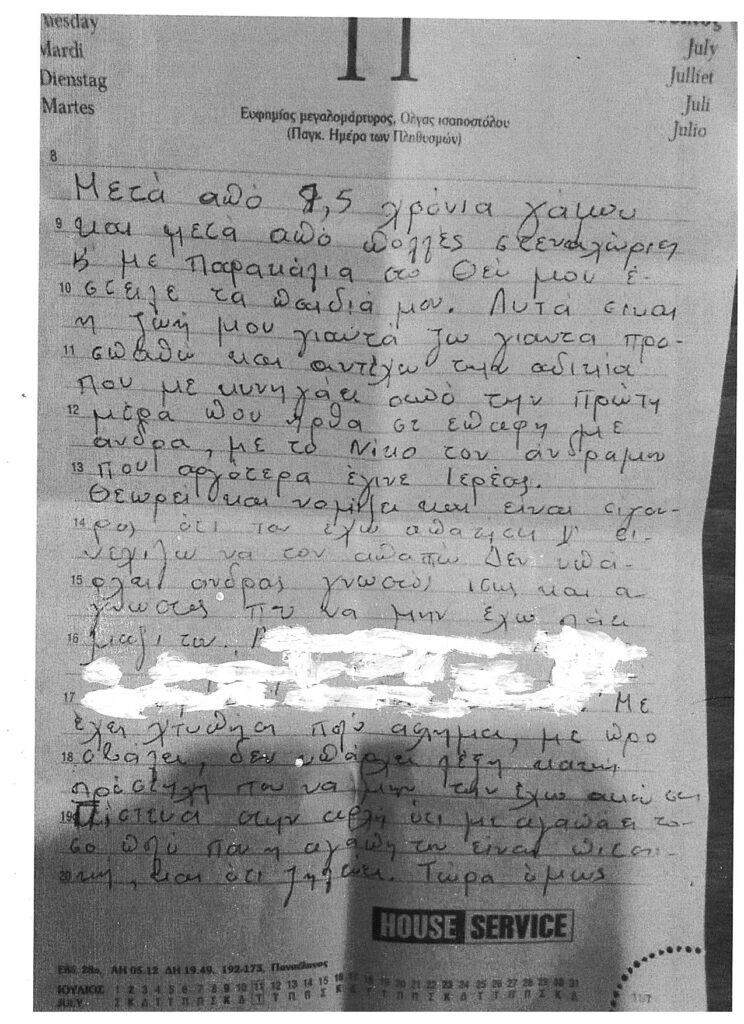 Tuesday
Mardi
Dienstag
Martes
11
July
Julliet
Juli
Julio
Ευφημίας μεγαλομάρτυρος, Όλγας ισαποστόλου
(Παγκ. Ημέρα των Πληθυσμών)
8
Μετά από 7,5 χρόνια γάμου
9 και μετά από πολλές στεναχώριες
κ με παρακάλια στο Θεό μου έ-
10 στειλε τα παιδιά μου. Αυτά είναι
η ζωή μου γιαυτά ζω γιαυτα προ-
11 σπαθώ και αντέχω την αδικία
που με κυνηγάει από την πρώτη
12 μέρα που ήρθα σε επαφή με
άνδρα, με το Νίκο τον άνδραμου
13 που αργότερα έγινε Ιερέας.
Θεωρεί και νομίζει και είναι σιγου-
14 ρος ότι τον έχω απατήσει κ συ-
νεχίζω να τον απατώ Δεν υπά-
15 ρχει άνδρας γνωστός ίσως και α-
γνωστος που να μην έχω πάει
16 μαζί του.
17 Με
έχει χτυπήσει πολύ άσχημα, με προ
18 σβάλει, δεν υπάρχει λέξη κακή
πρόστυχη που να μην την έχω ακούσει
19 Πίστευα στην αρχή ότι με αγαπάει το-
σο πολύ που η αγάπη του είναι
20 και ότι ζηλεύει. Τώρα όμως
HOUSE SERVICE
Εβδ. 28α, ΑΗ 05.12 ΔΗ 19.49, 192-173, Πανσέληνος
ΙΟΥΛΙΟΣ 1 2 3 4 5 6 7 8 9 10 11 12 13 14 15 16 17 18 19 20 21 22 23 24 25 26 27 28 29 30 31
JULY Σ Κ Δ Τ Τ Π Π Σ Κ Δ Τ Τ Π Π Σ Κ Δ Τ Τ Π Π Σ Κ Δ Τ Τ Π Π Σ Κ Δ
11/7